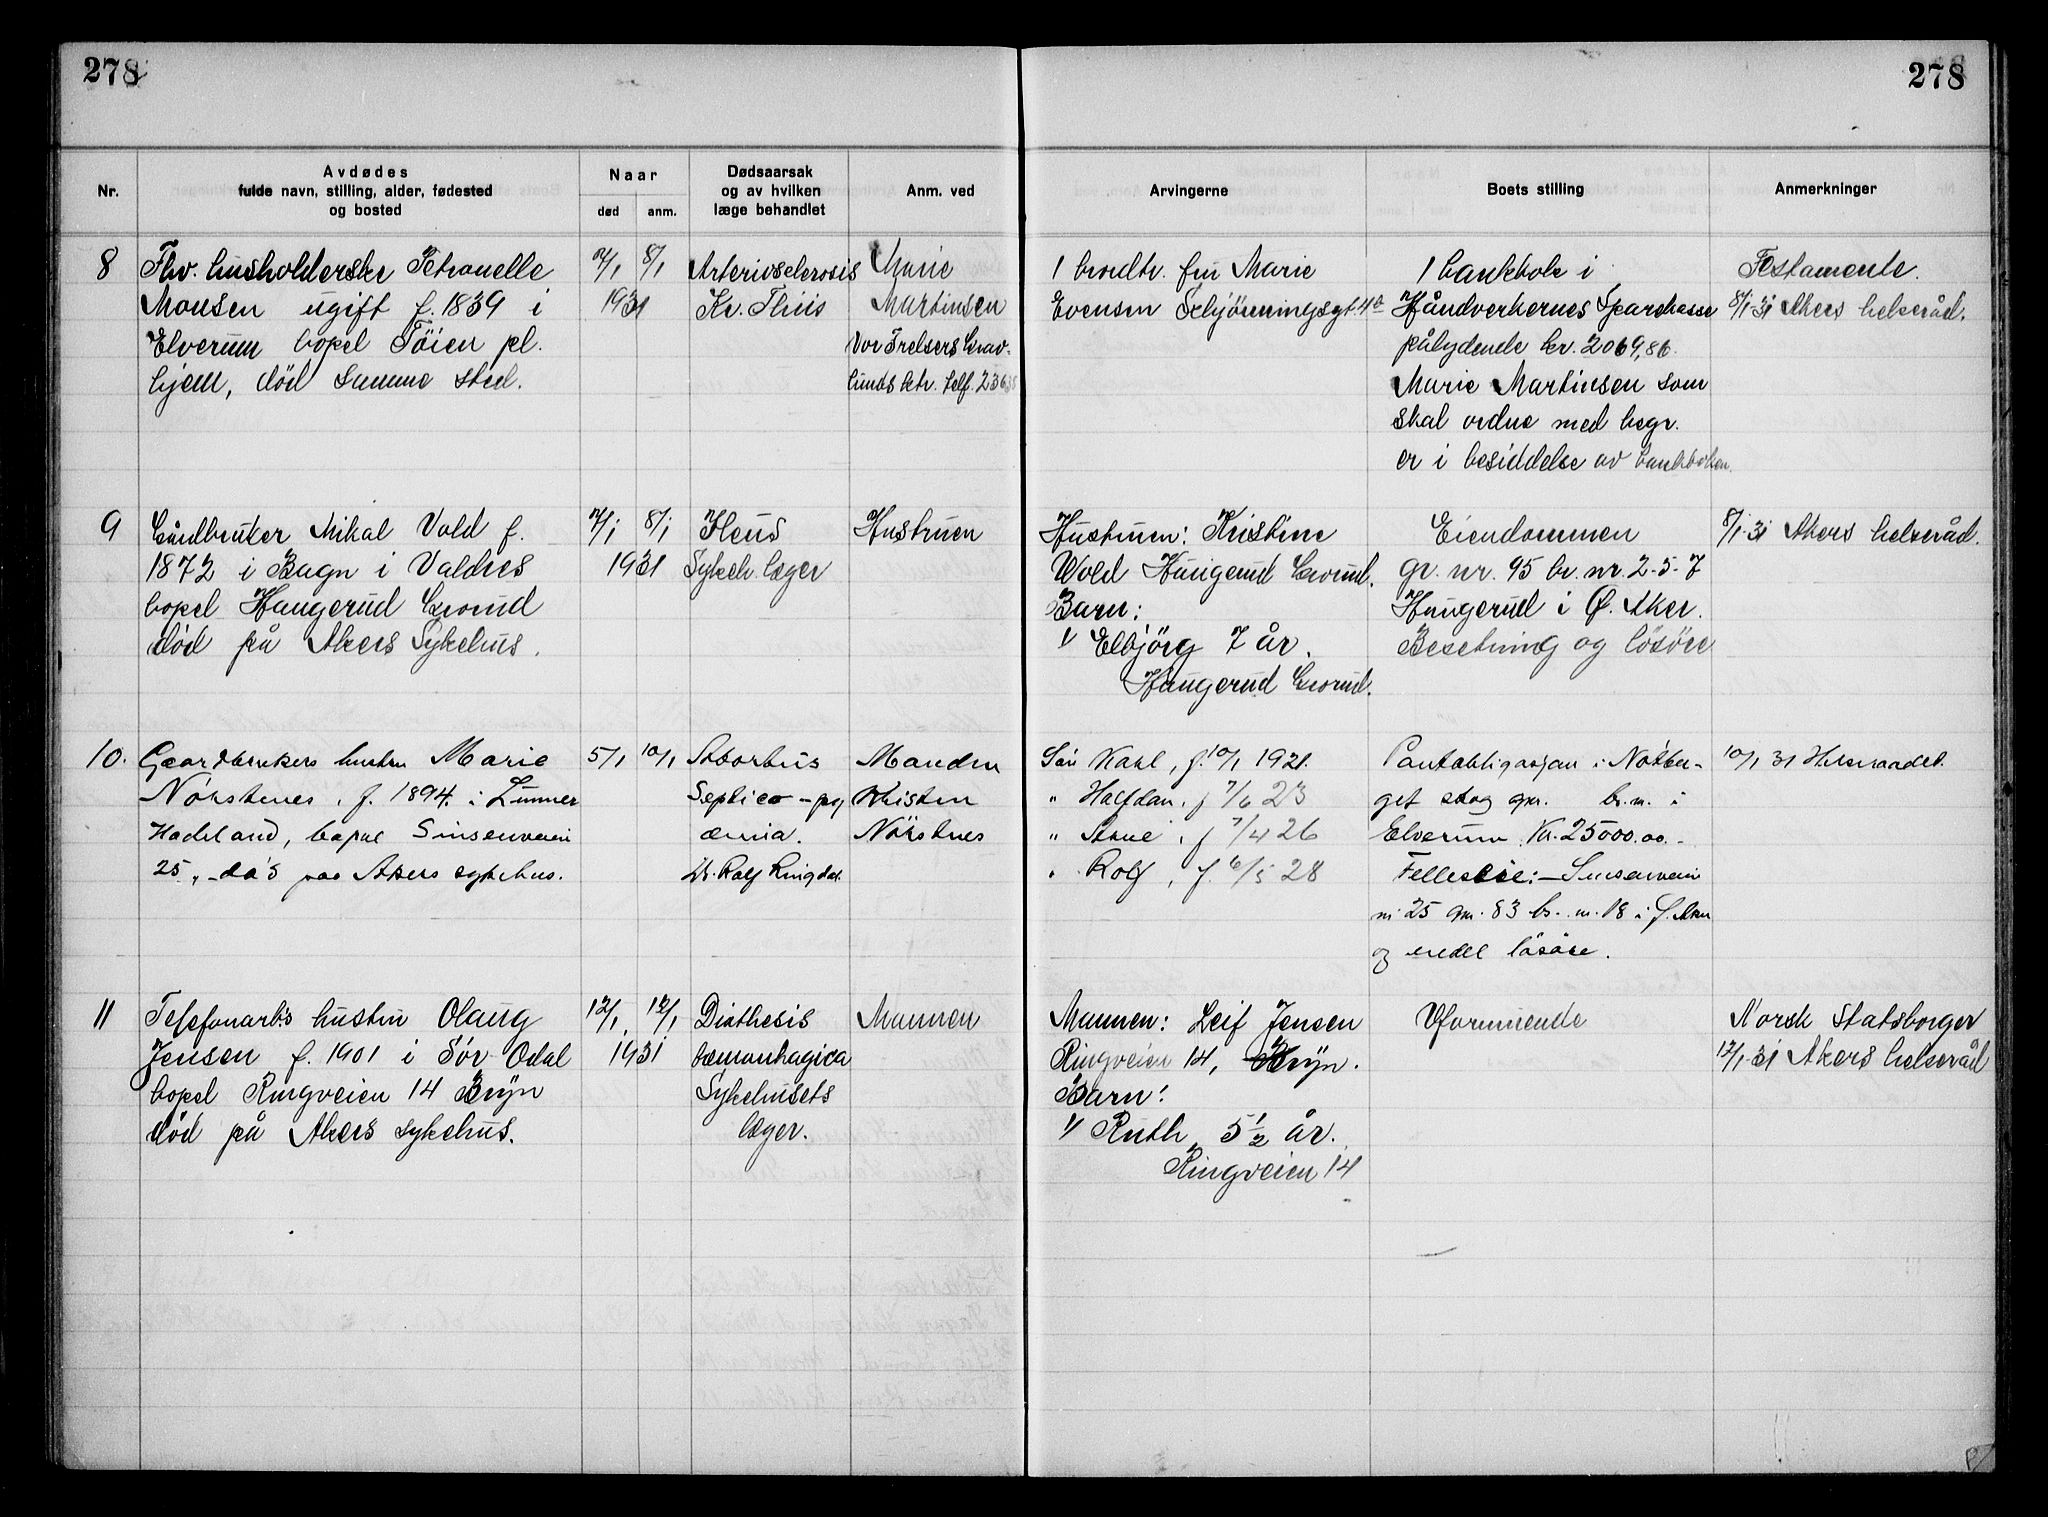 278
278
Nr.
Avdødes
fulde navn, stilling, alder, fødested
og bosted
Naar
død
anm.
Dødsaarsak
og av hvilken
læge behandlet
Anm. ved
Arvingerne
Boets stilling
Anmerkninger
8
Fhv. husholderske Petronelle
Monsen ugift f. 1839 i
Elverum bopel Töien pl.
hjem, död samme sted.
8/1
1931
Arteriosclerosis
Kr. Thiis
Marie
Martinsen
Vor Frelsers Grav-
lunds ktr. telf.
1 brordtr. fru Marie
Evensen
1 bankbok i
Håndverkernes Sparekasse
pålydende kr. 2069,86.
Marie Martinsen som
skal ordne med begr.
er i besiddelse av bankboken.
Testamente.
8/1-31 Akers helseråd.
9
Gårdbruker Mikal Vold f.
1872 i Bagn i Valdres
bopel Haugerud Grorud
död på Akers Sykehus.
7/1
8/1
1931
Ileus
Sykeh. læger
Hustruen
Hustruen: Kristine
Wold Haugerud Grorud.
Barn:
1/ Elbjörg 7 år.
Haugerud Grorud.
Eiendommen
gr. nr. 95 br. nr. 2-5-7
Haugerud i Ø. Aker.
Besetning og lösöre
8/1-31 Akers helseråd.
10.
Gaardbrukers hustru Marie
f. 1894 i Lunner
Hadeland, bopæl Sinsenveien
25, - död paa Akers sykehus.
5/1
10/1
Abortus
Septico - py
æmia.
Dr. Rolf Ringdal
Manden
Kristen
Sön Karl, f. 10/1 1921.
" Halfdan, f 7/6 23
" Arne, f 7/4 26
" Rolf, f. 6/5 28
Pantobligasjon i
get skog gnr. br. nr. i
Elverum Kr. 25000.00.-
Felleseie: - Sinsenveien
nr 25 gnr. 83 br. nr. 18 i Ö. Aker
og endel lösöre.
10/1 31 Helseraadet.
11
Telefonarb.s hustru Olaug
Jensen f. 1901 i Sør-Odal
bopel Ringveien 14 Bryn
död på Akers sykehus.
12/1
12/1
1931
Diathesis
hæmorrhagica
Sykehusets
læger.
Mannen
Mannen: Leif Jensen
Ringveien 14, Bryn.
Barn:
1/ Ruth 5 1/2 år.
Ringveien 14
Uformuende
Norsk Statsborger
12/1-31 Akers helseråd